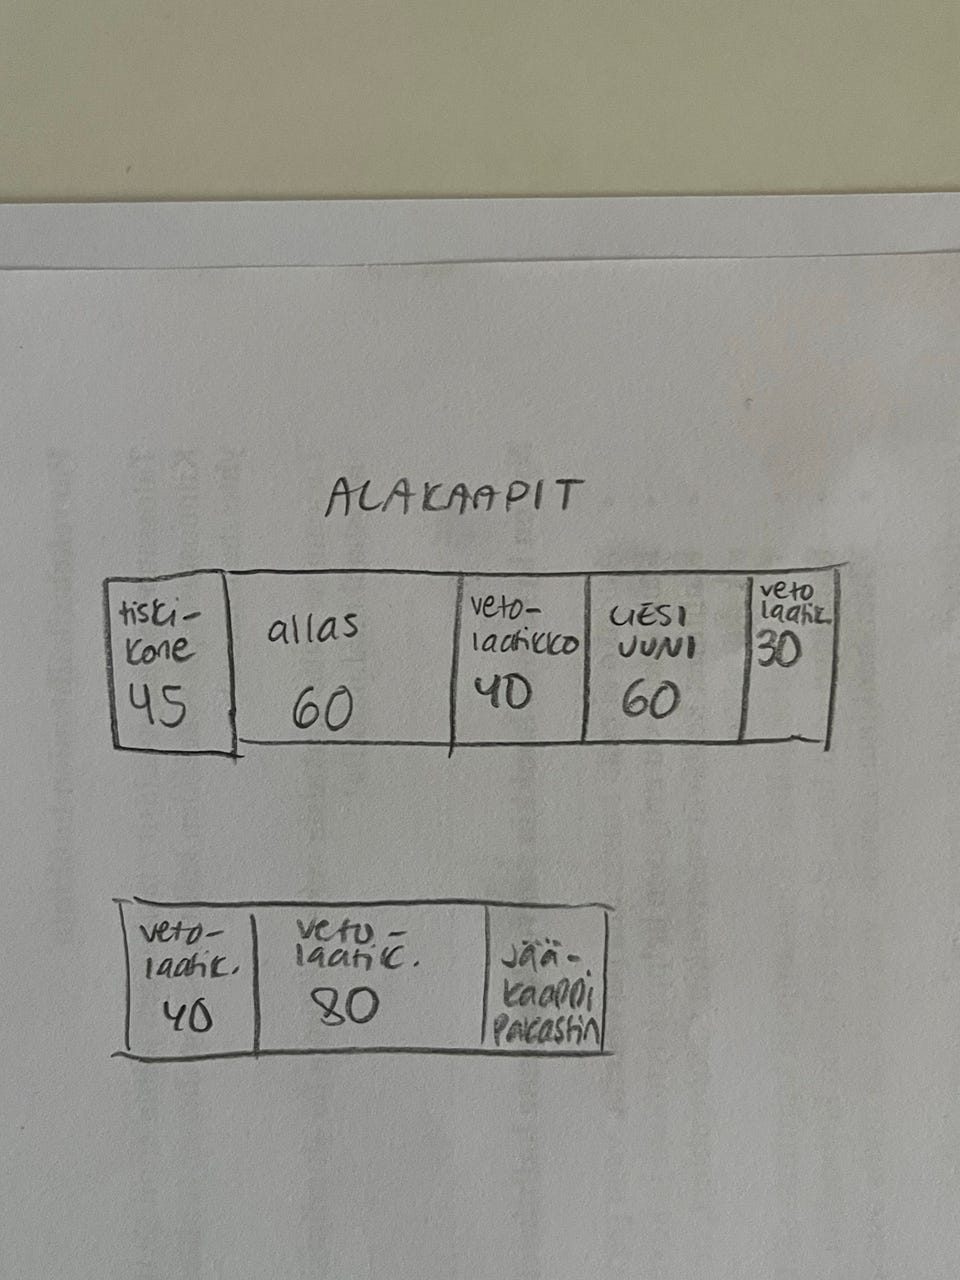 ALAKAAPIT
tiski-
kone
45
allas
60
veto-
laatikko
40
LIESI
UUNI
60
veto
laatik.
30
veto-
laatik.
40
veto-
laatik.
80
jää-
kaappi
pakastin